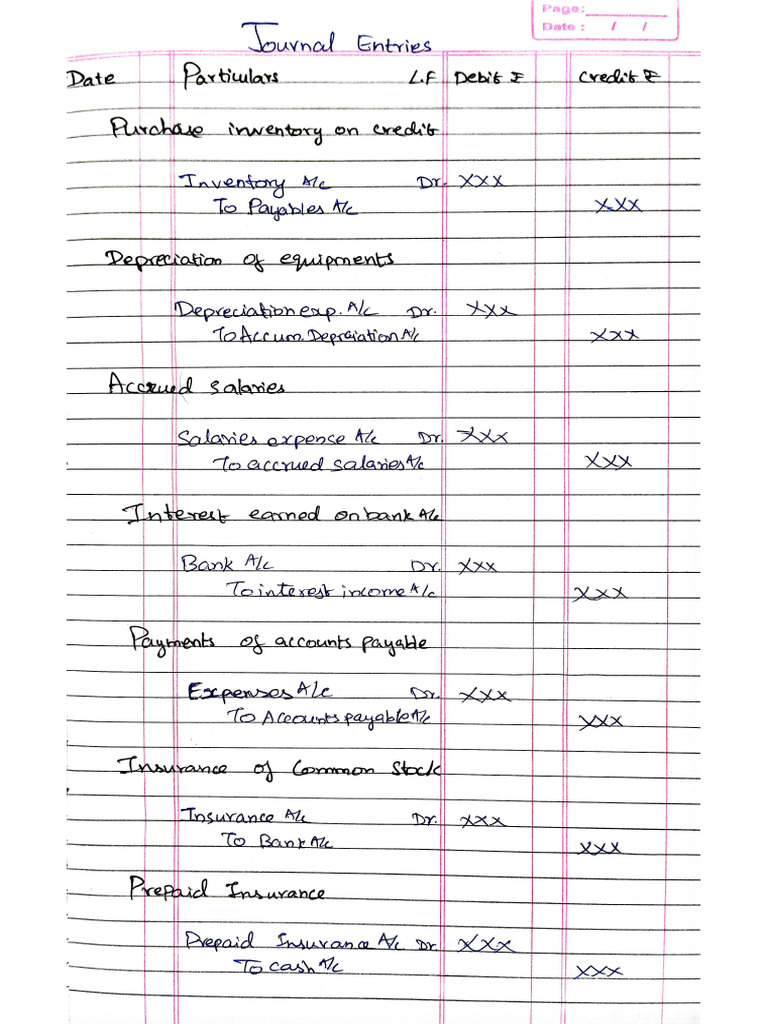 Page:
Date : / /
Journal Entries
Date Particulars L.F Debit ₹ Credit ₹
Purchase inventory on credit
Inventory A/c Dr. XXX
To Payables A/c XXX
Depreciation of equipments
Depreciation exp. A/c Dr. XXX
To Accum. Depreiation A/c XXX
Accrued salaries
Salaries expense A/c Dr. XXX
To accrued salaries A/c XXX
Interest earned on bank A/c
Bank A/c Dr. XXX
To interest income A/c XXX
Payments of accounts payable
Expenses A/c Dr. XXX
To Accounts payable A/c XXX
Insurance of Common Stock
Insurance A/c Dr. XXX
To Bank A/c XXX
Prepaid Insurance
Prepaid Insurance A/c Dr XXX
To cash A/c XXX